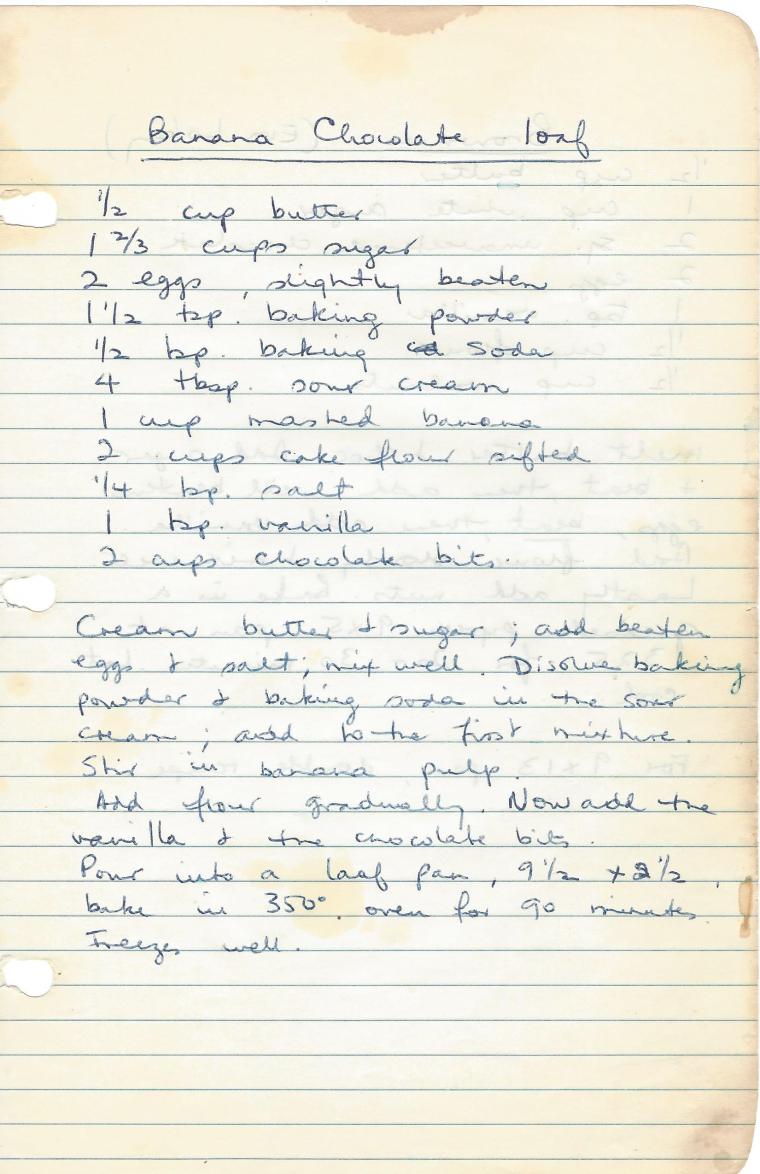 Banana Chocolate loaf
1/2 cup butter
1 2/3 cups sugar
2 eggs, slightly beaten
1 1/2 tsp. baking powder
1/2 tsp. baking soda
4 tbsp. sour cream
1 cup mashed banana
2 cups cake flour sifted
1/4 tsp. salt
1 tsp. vanilla
2 cups chocolate bits.
Cream butter & sugar; add beaten
eggs & salt; mix well. Disolve baking
powder & baking soda in the sour
cream; add to the first mixture.
Stir in banana pulp.
Add flour gradually. Now add the
vanilla & the chocolate bits.
Pour into a loaf pan, 9 1/2 x 2 1/2,
bake in 350° oven for 90 minutes.
Freezes well.